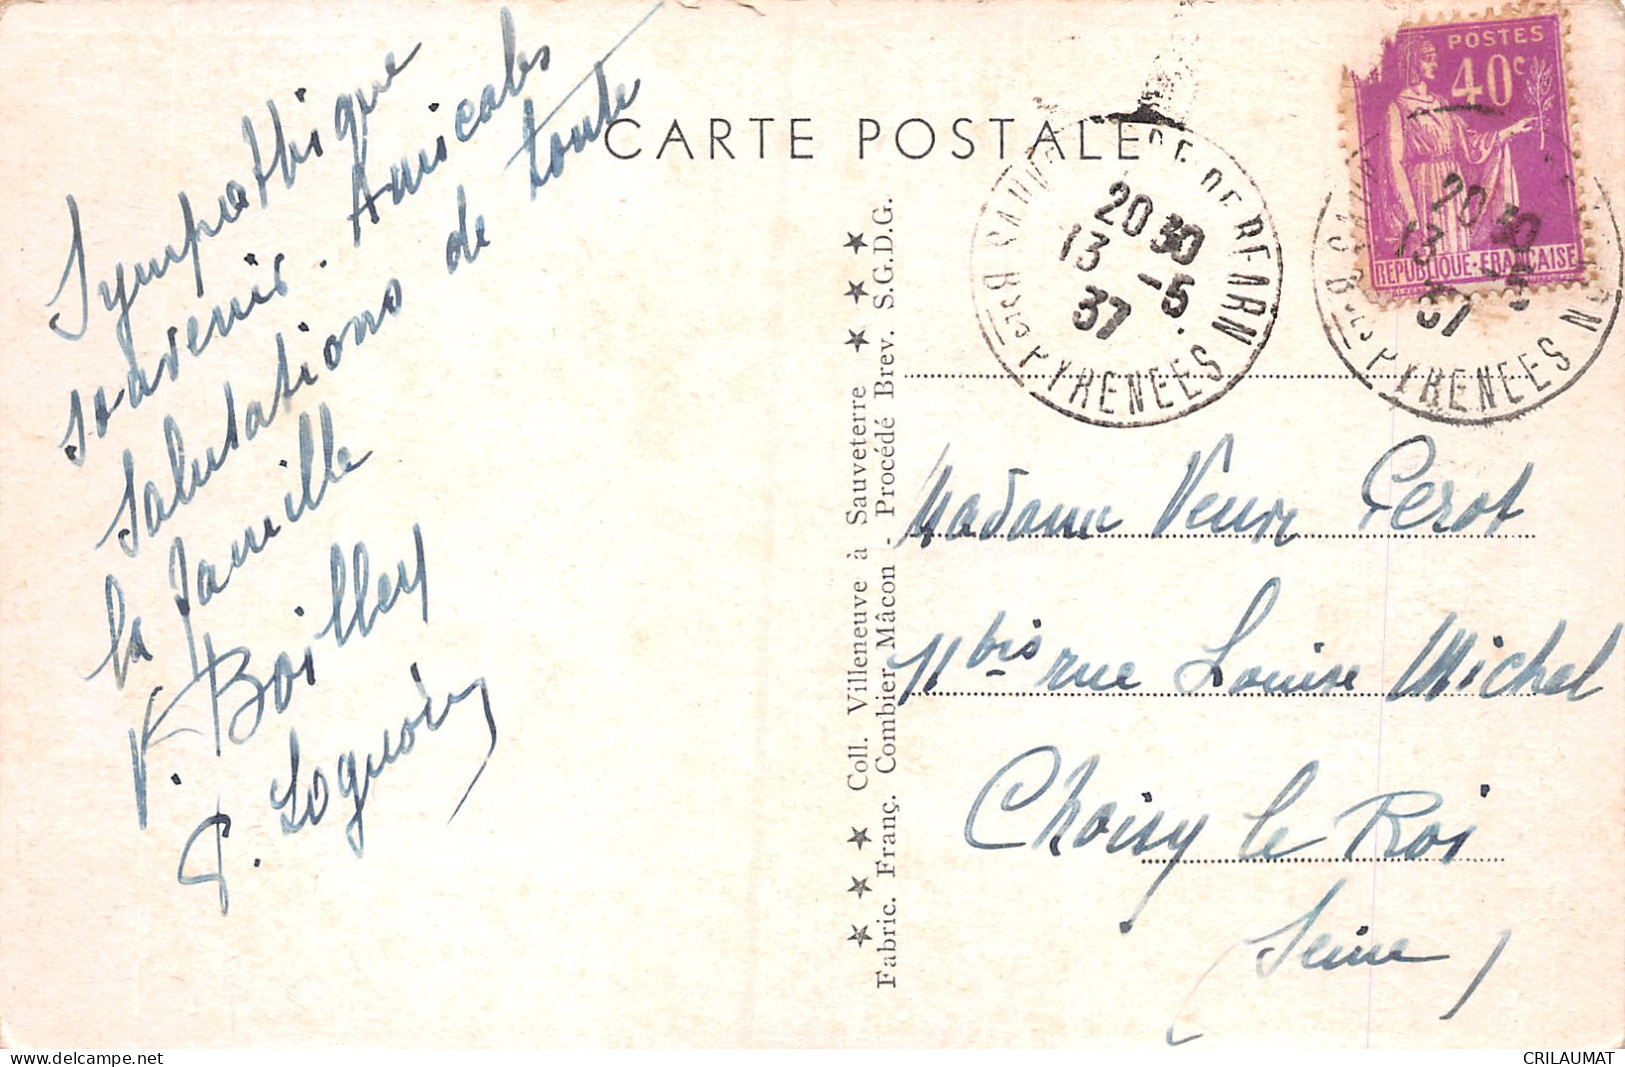 Sympathique
souvenir. Amicales
salutations de toute
la famille
V. Boilley
P. Loguoin
CARTE POSTALE
★ ★ ★ Coll. Villeneuve à Sauveterre ★ ★ ★
Fabric. Franç. Combier Mâcon - Procédé Brev. S.G.D.G.
POSTES
40c
REPUBLIQUE·FRANÇAISE
DE BEARN
20 30
13 -5
37
BSES PYRENEES
20 30
13 -5
37
BSES PYRENEES
Madame Veuve Perot
11 bis rue Louise Michel
Choisy le Roi
(Seine)
CRILAUMAT